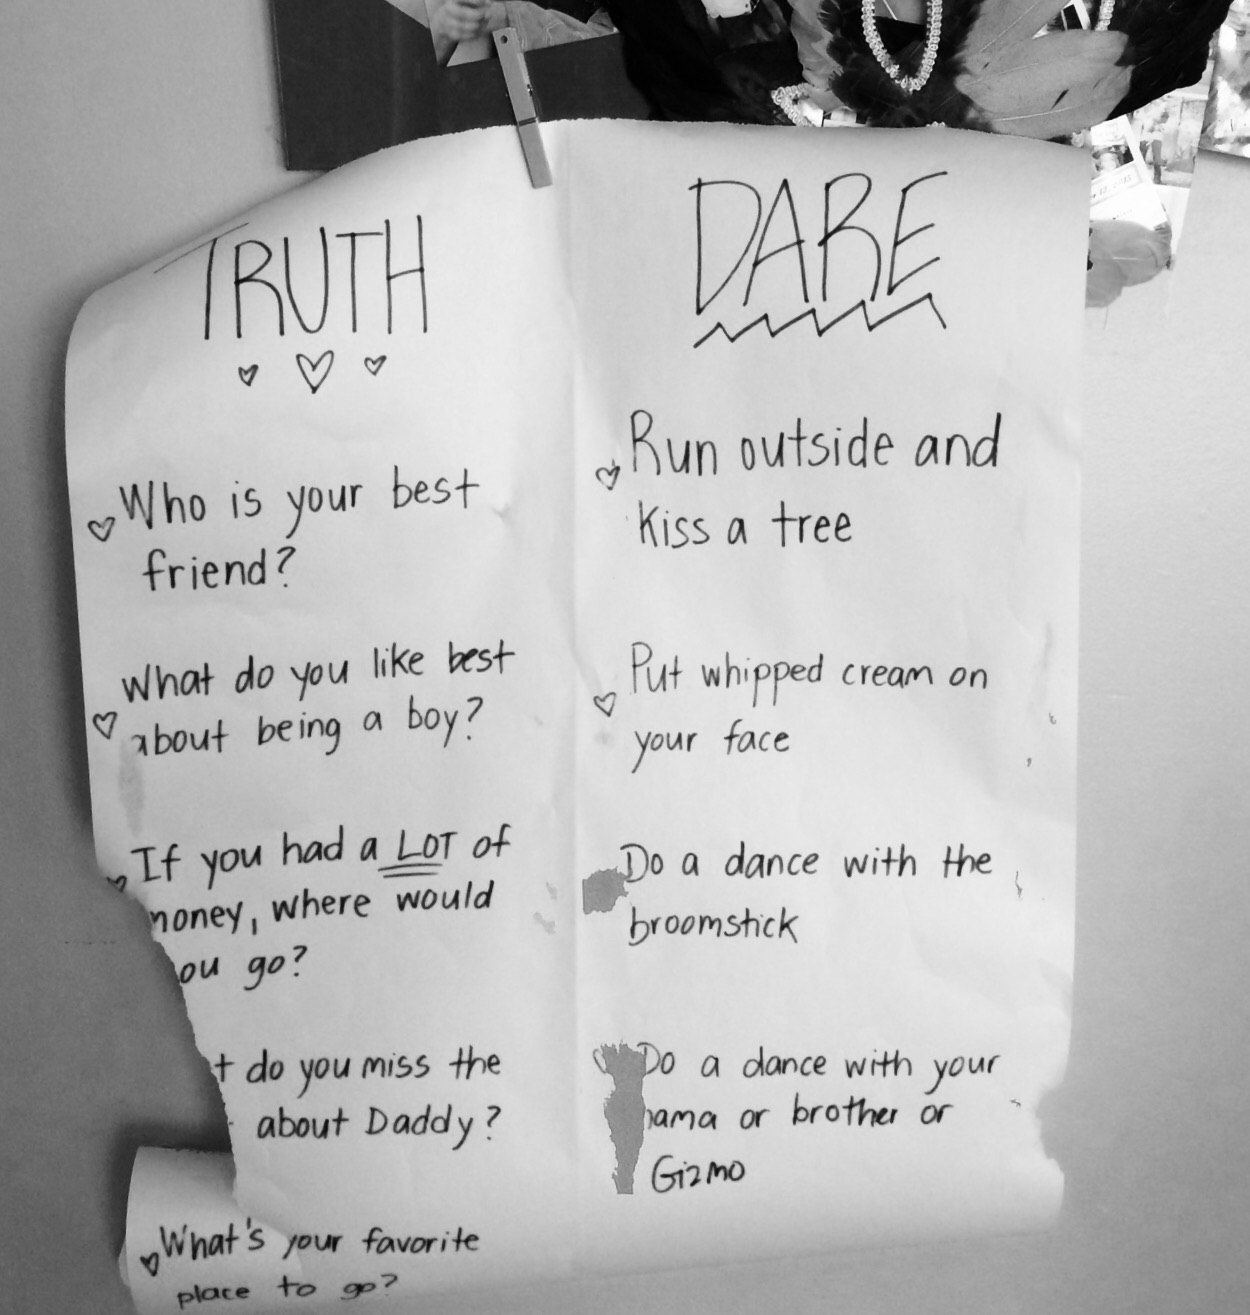 TRUTH
Who is your best
friend?
What do you like best
about being a boy?
If you had a LOT of
money, where would
ou go?
t do you miss the
about Daddy?
What's your favorite
place to go?
DARE
Run outside and
kiss a tree
Put whipped cream on
your face
Do a dance with the
broomstick
Do a dance with your
ama or brother or
Gizmo